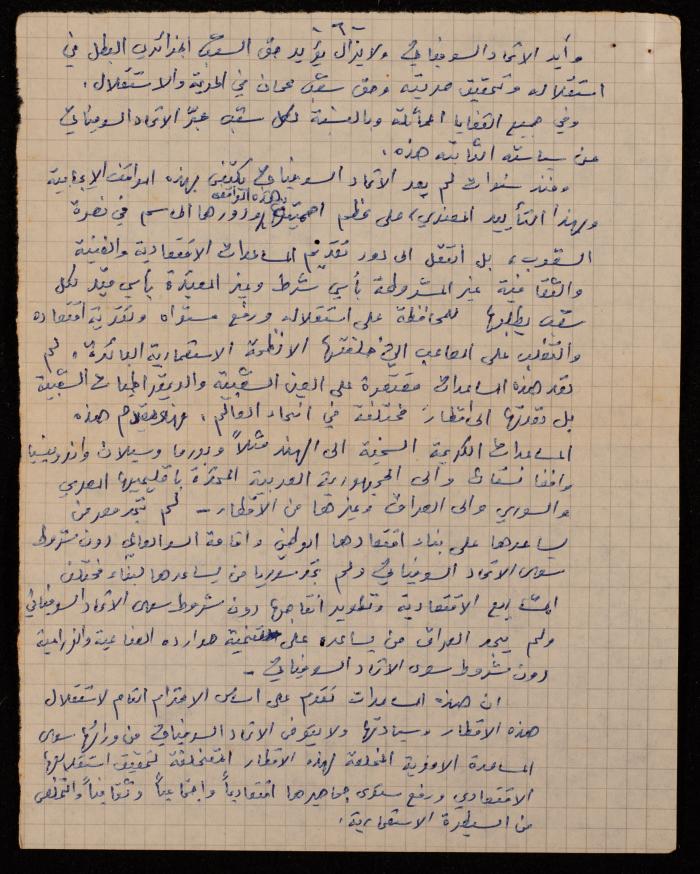 -٦-
وأيد الاتحاد السوفياتي ولا يزال يؤيد حق الشعب الجزائري البطل في
استقلاله وتحقيق حريته وحق شعب عمان في الحرية والاستقلال.
وفي جميع القضايا المماثلة وبالنسبة لكل شعب عبّر الاتحاد السوفياتي
عن سياسته الثابتة هذه.
ومنذ سنوات لم يعد الاتحاد السوفياتي يكتفي بهذه المواقف الايجابية
وبهذا التأييد المعنوي، على عظم اهمية هذه المواقف ودورها الحاسم في نصرة
الشعوب، بل انتقل الى دور تقديم المساعدات الاقتصادية والفنية
والثقافية غير المشروطة بأي شرط وغير المقيدة بأي قيد لكل
شعب يطلبها للمحافظة على استقلاله ورفع مستواه وتقوية اقتصاده
والتغلب على المصاعب التي خلفتها الانظمة الاستعمارية البائدة. لم
تعد هذه المساعدات مقتصرة على الصين الشعبية والديمقراطيات الشعبية
بل تعدتها الى اقطار مختلفة في انحاء العالم. هذه
المساعدات الكريمة السخية الى الهند مثلاً وبورما وسيلان واندونيسيا
وافغانستان والى الجمهورية العربية المتحدة باقليميها المصري
والسوري والى العراق وغيرها من الاقطار - لم تجد مصر من
يساعدها على بناء اقتصادها الوطني واقامة السد العالي دون شروط
سوى الاتحاد السوفياتي ولم تجد سوريا من يساعدها لبناء مختلف
المشاريع الاقتصادية وتطوير انتاجها دون شروط سوى الاتحاد السوفياتي
ولم يجد العراق من يساعده على تنمية موارده الصناعية والزراعية
دون شروط سوى الاتحاد السوفياتي -
ان هذه المساعدات تقدم على اساس الاحترام التام لاستقلال
هذه الاقطار وسيادتها ولا يتوخى الاتحاد السوفياتي من ورائها سوى
المساعدة الاخوية المخلصة لهذه الاقطار المتخلفة لتحقيق استقلالها
الاقتصادي ورفع مستوى جماهيرها اقتصادياً واجتماعياً وثقافياً والتخلص
من السيطرة الاستعمارية.